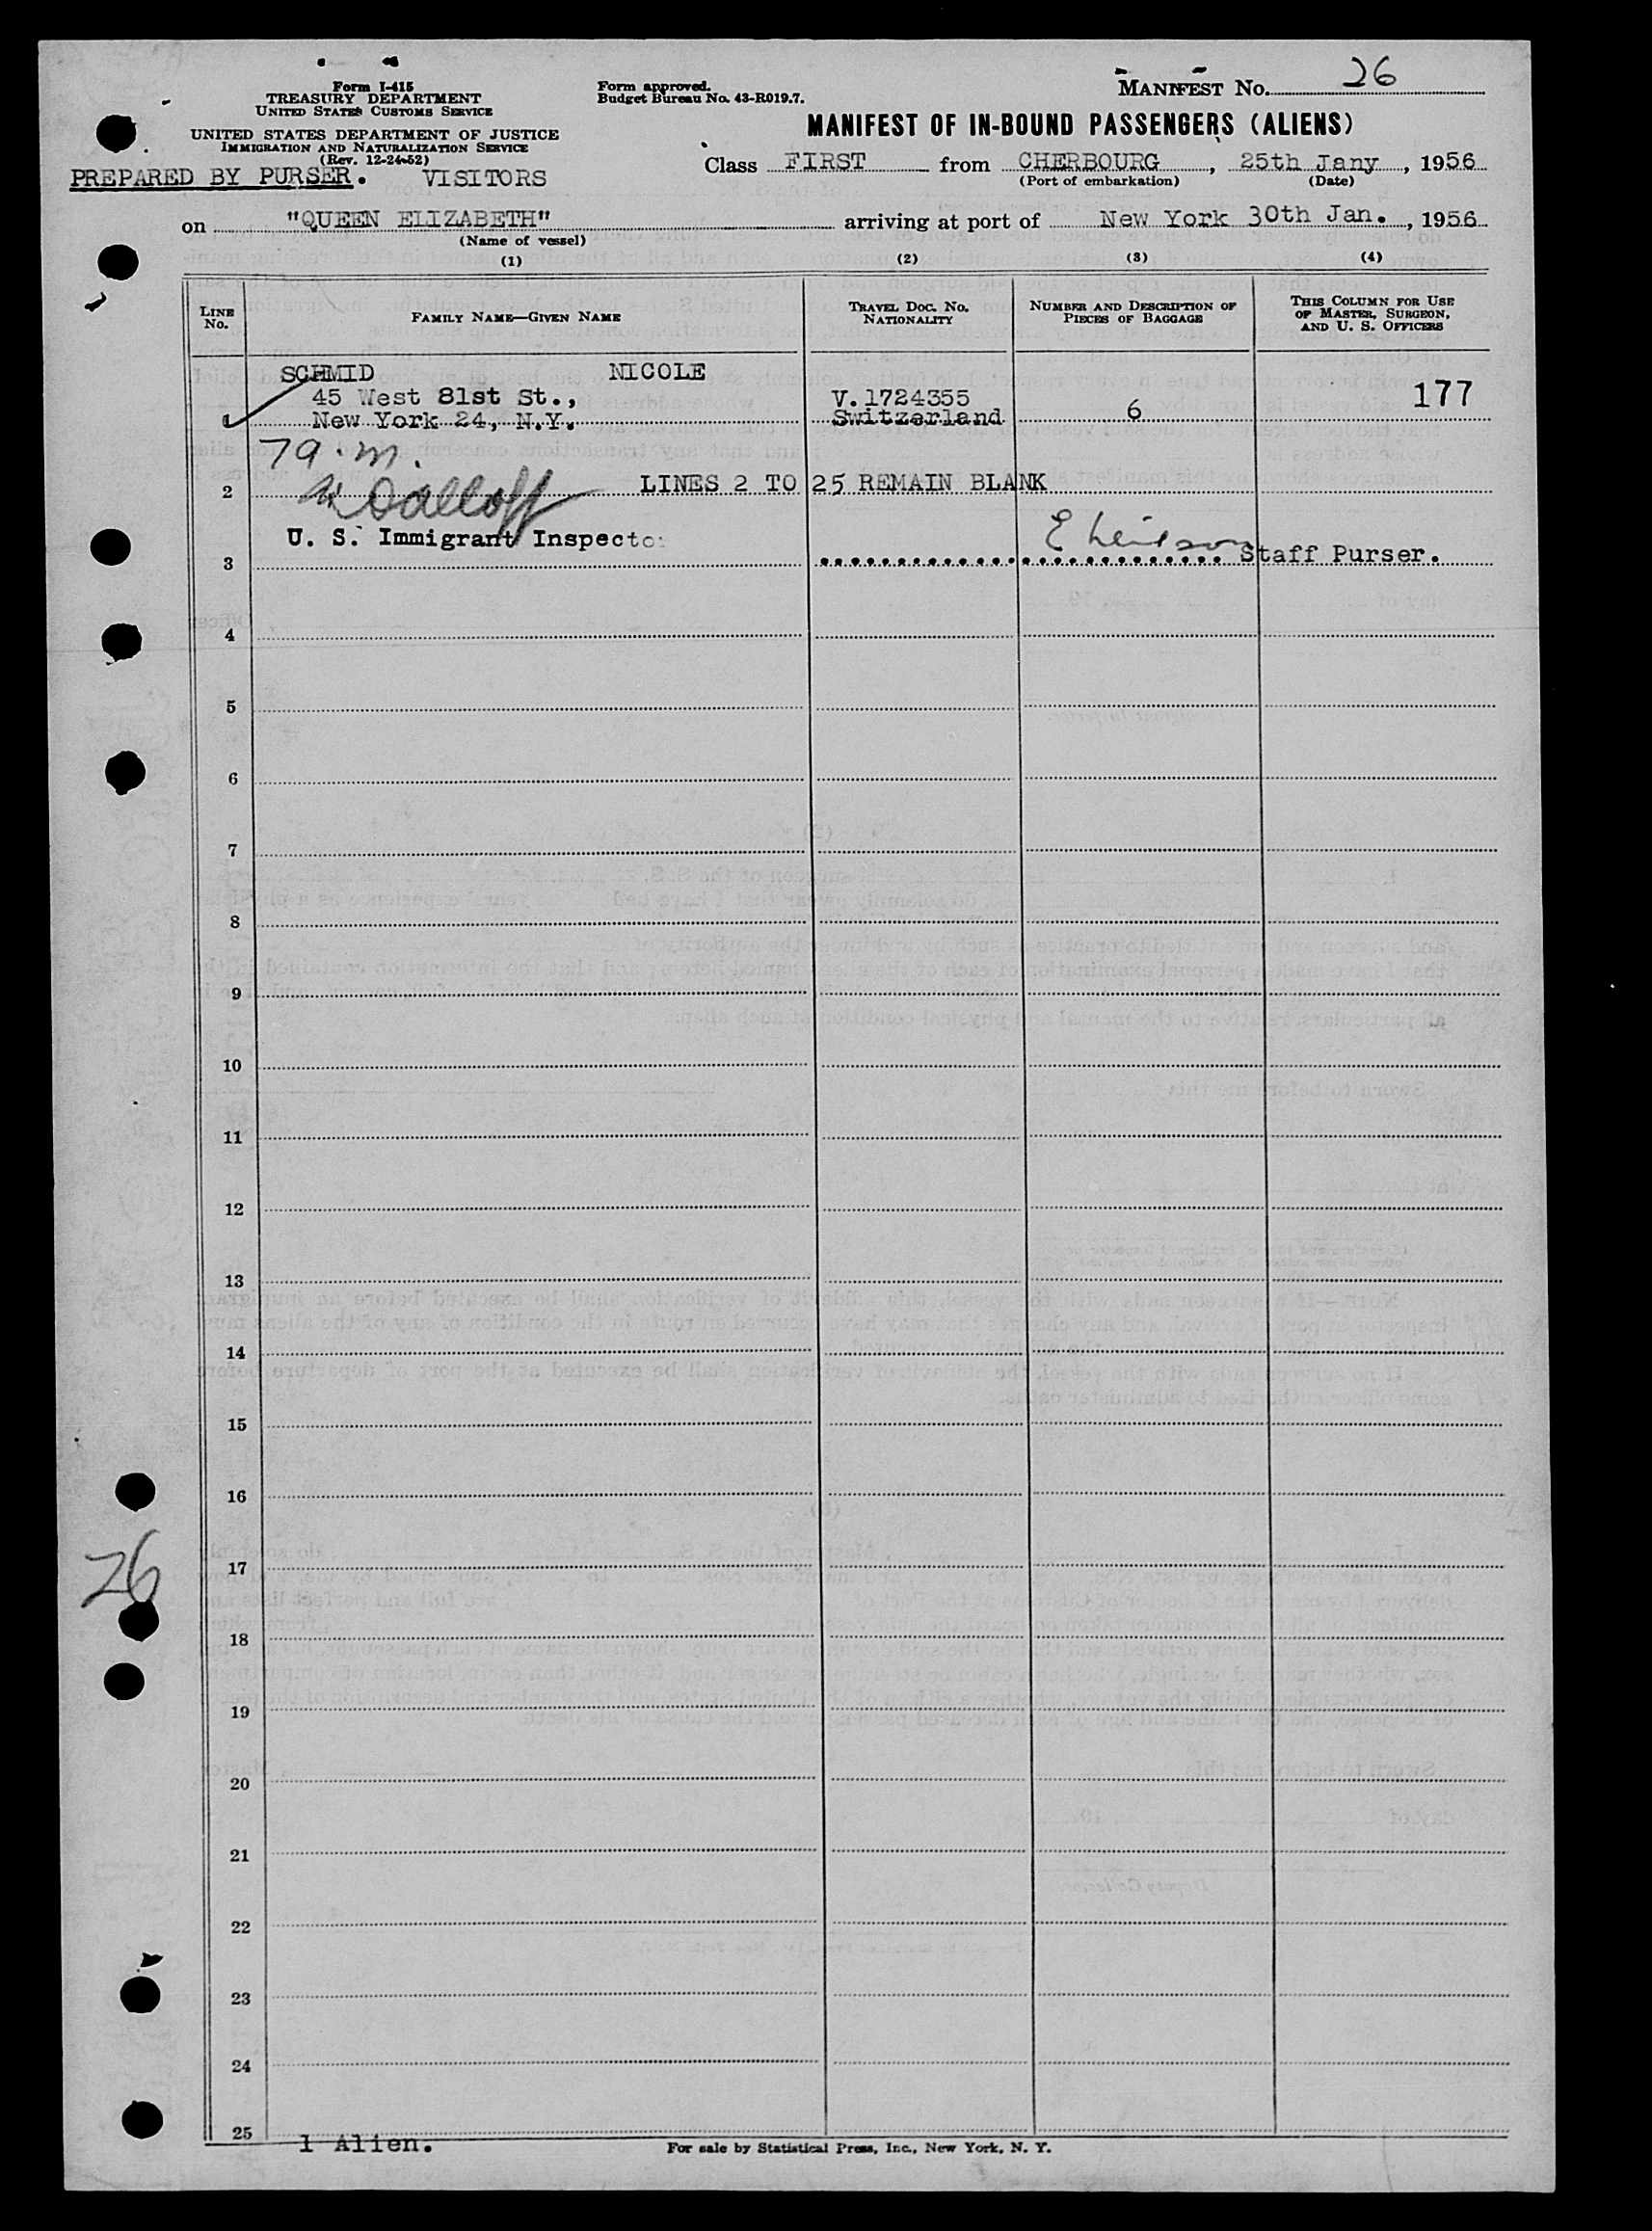 Form I-415
TREASURY DEPARTMENT
UNITED STATES CUSTOMS SERVICE
UNITED STATES DEPARTMENT OF JUSTICE
IMMIGRATION AND NATURALIZATION SERVICE
(Rev. 12-24-52)
PREPARED BY PURSER. VISITORS
Form approved.
Budget Bureau No. 43-R019.7.
MANIFEST NO. 26
MANIFEST OF IN-BOUND PASSENGERS (ALIENS)
Class FIRST from CHERBOURG, 25th Jany, 1956
(Port of embarkation) (Date)
on "QUEEN ELIZABETH" arriving at port of New York 30th Jan., 1956
(Name of vessel)
(1) (2) (3) (4)
LINE NO.
FAMILY NAME—GIVEN NAME
TRAVEL DOC. NO. NATIONALITY
NUMBER AND DESCRIPTION OF PIECES OF BAGGAGE
THIS COLUMN FOR USE OF MASTER, SURGEON, AND U. S. OFFICERS
SCHMID NICOLE
45 West 81st St., V.1724355 177
1 New York 24, N.Y. Switzerland 6
79.m.
2 LINES 2 TO 25 REMAIN BLANK
U. S. Immigrant Inspector
3 Staff Purser.
4
5
6
7
8
9
10
11
12
13
14
15
16
26
17
18
19
20
21
22
23
24
25
1 Alien.
For sale by Statistical Press, Inc., New York, N. Y.